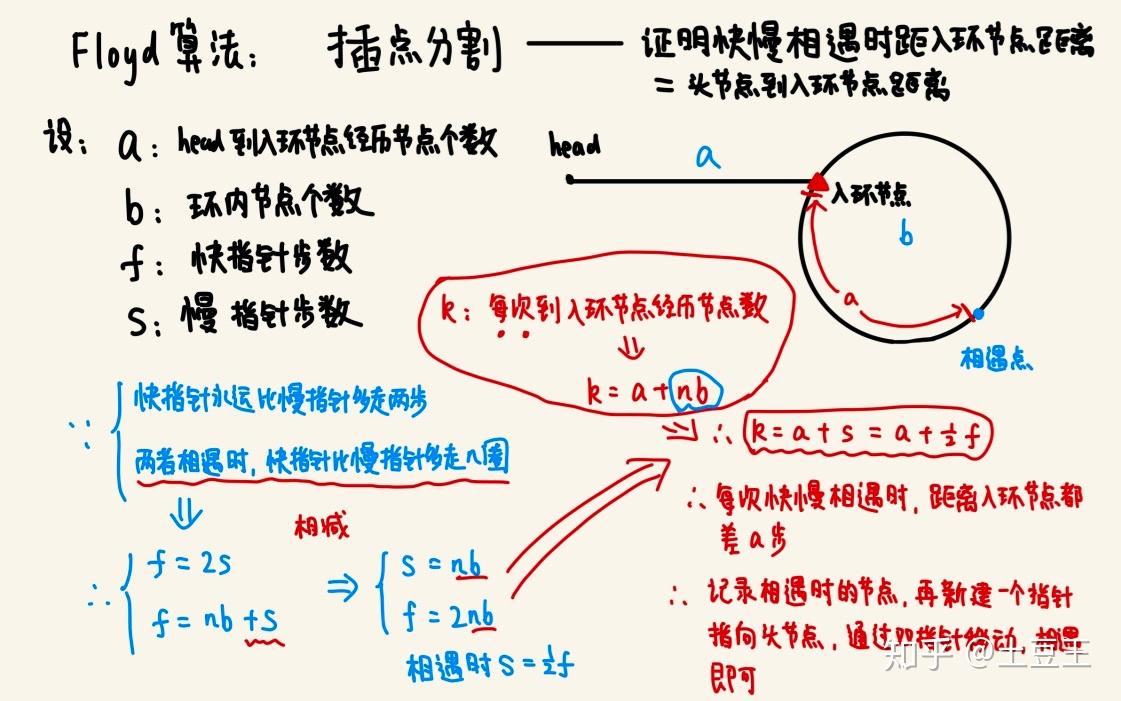 Floyd算法： 插点分割 —— 证明快慢相遇时距入环节点距离
= 头节点到入环节点距离
设： a： head到入环节点经历节点个数
b： 环内节点个数
f： 快指针步数
s： 慢指针步数
head
a
入环节点
b
a
相遇点
k：每次到入环节点经历节点数
⇓
k = a + nb
∵ 快指针永远比慢指针多走两步
两者相遇时，快指针比慢指针多走n圈
⇓
相减
∴ f = 2s
f = nb + s
⇒ s = nb
f = 2nb
相遇时 s = ½f
⇒ ∴ k = a + s = a + ½f
∴ 每次快慢相遇时，距离入环节点都
差a步
∴ 记录相遇时的节点，再新建一个指针
指向头节点，通过双指针移动，相遇
即可
知乎 @土豆王